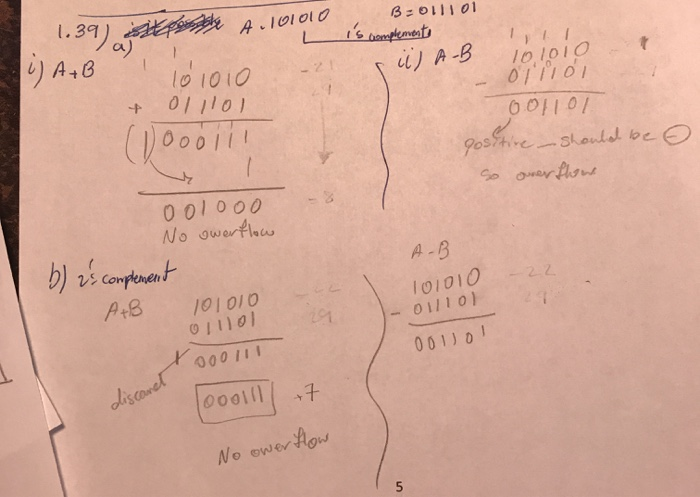 1.39) a) A. 101010 B = 011101
1's complement
i) A+B
101010 -21
+ 011101 29
(1) 000111
1
001000 -8
No overflow
ii) A-B
1 1 1 1
101010
- 011101
001101
positive - should be ⊖
so overflow
b) 2's complement
A+B
101010 -22
011101 29
1 000111
discard
000111 +7
No overflow
A-B
101010 -22
- 011101 29
001101
5